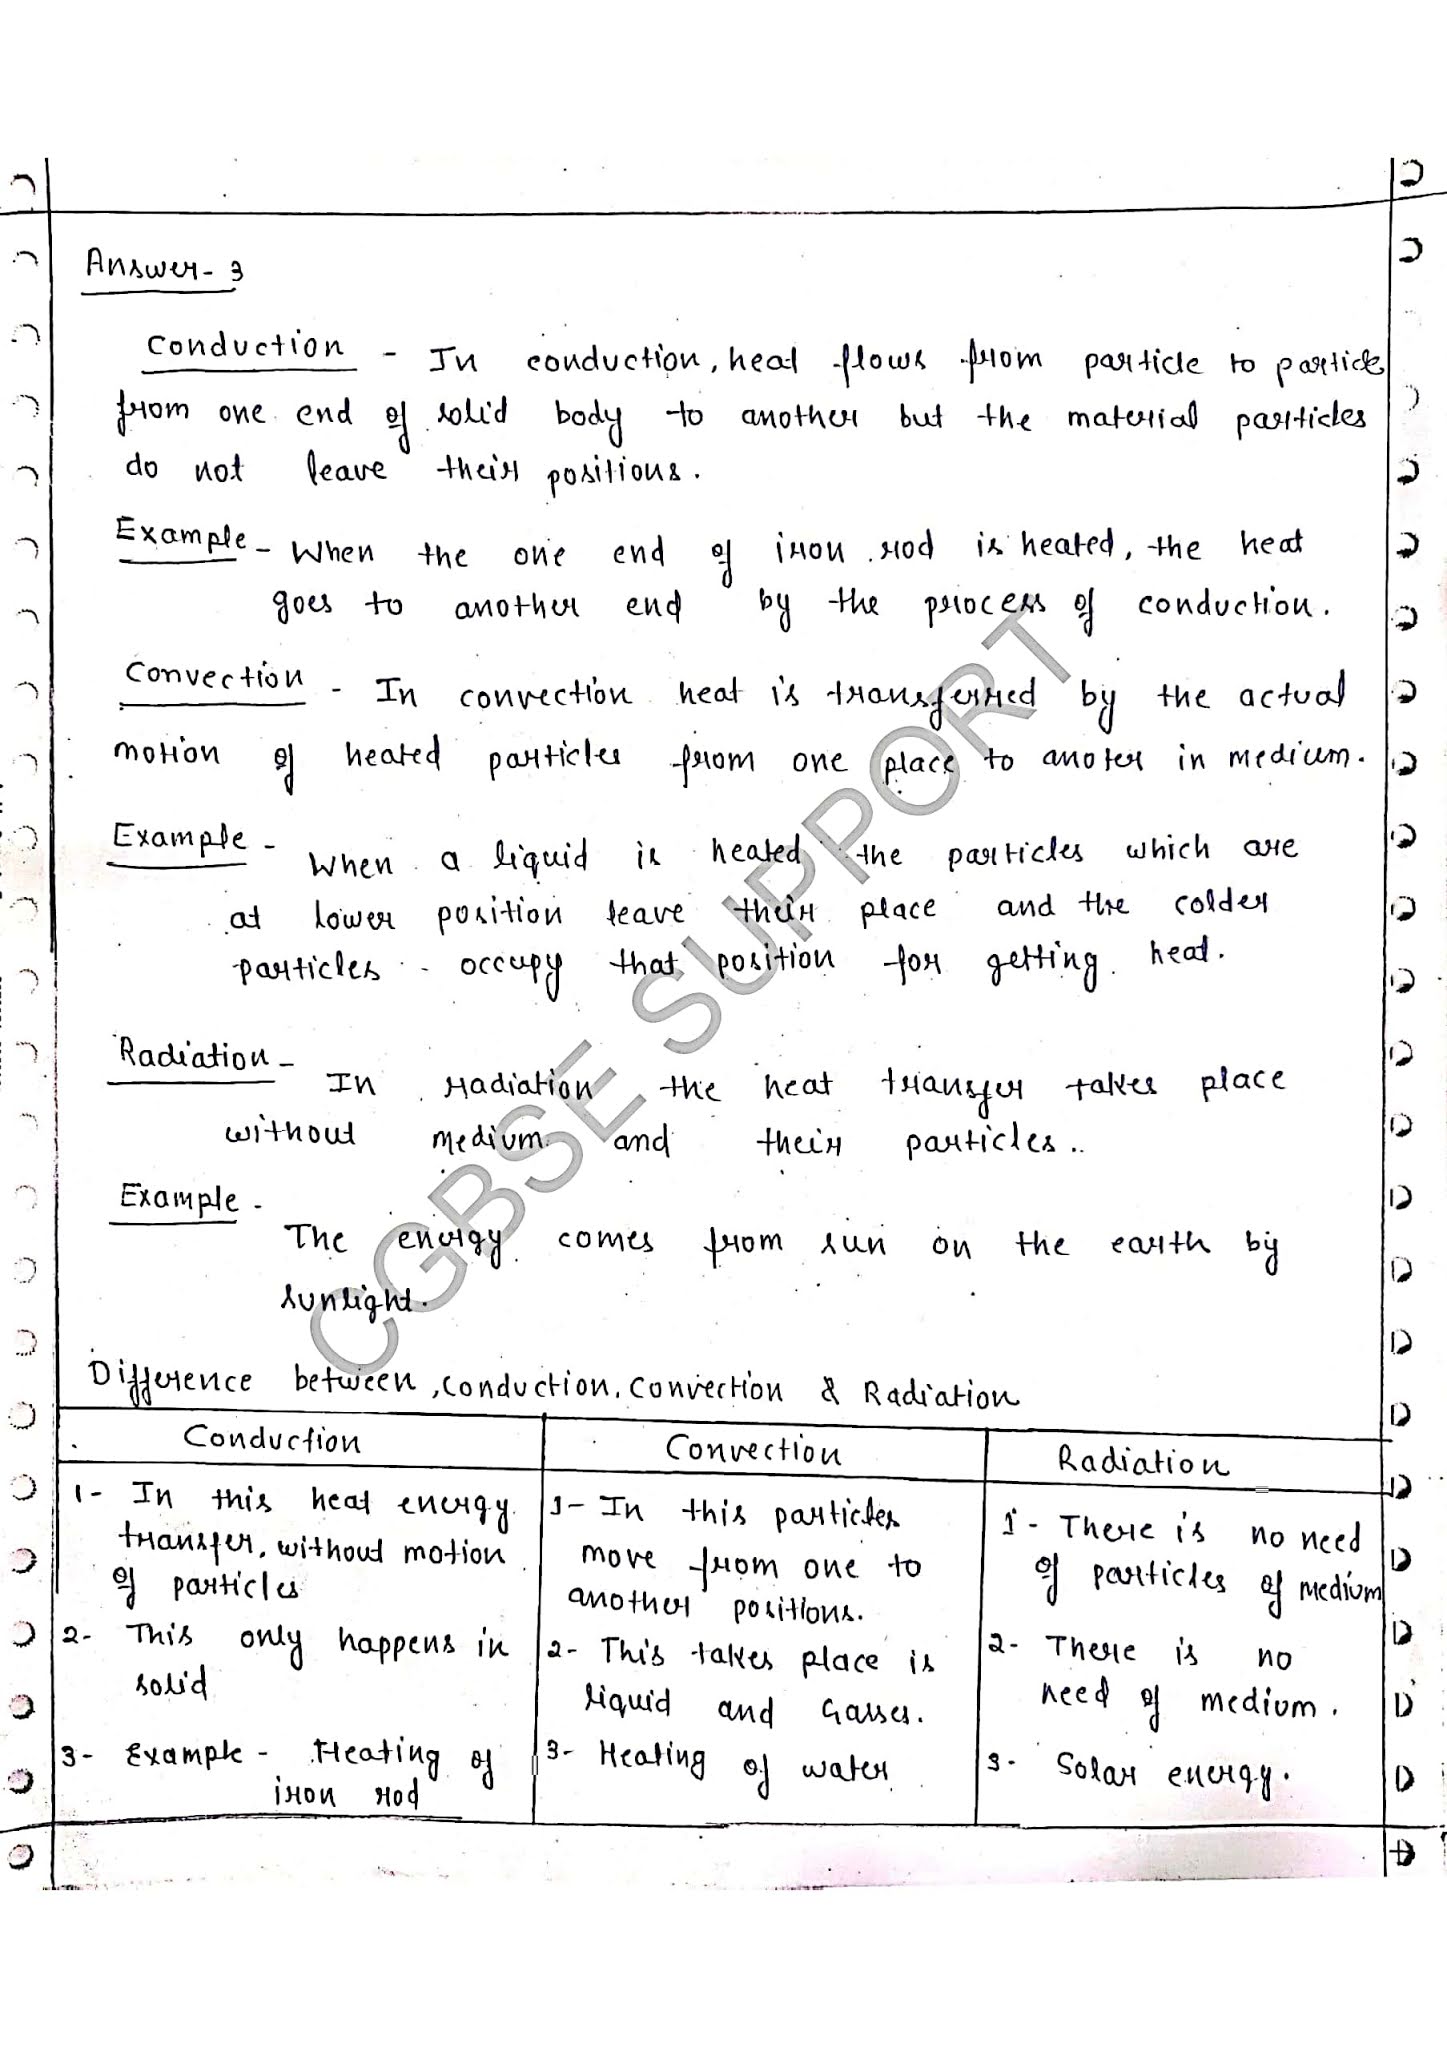 Answer- 3
Conduction - In conduction, heat flows from particle to particle
from one end of solid body to another but the material particles
do not leave their positions.
Example - When the one end of iron rod is heated, the heat
goes to another end by the process of conduction.
Convection - In convection heat is transferred by the actual
motion of heated particles from one place to anoter in medium.
Example - When a liquid is heated the particles which are
at lower position leave their place and the colder
particles occupy that position for getting heat.
Radiation - In radiation the heat transfer takes place
without medium and their particles..
Example -
The energy comes from sun on the earth by
sunlight.
CGBSE SUPPORT
Difference between, conduction, convection & Radiation
Conduction Convection Radiation
1- In this heat energy
transfer, without motion
of particles
2- This only happens in
solid
3- Example - Heating of
iron rod
1- In this particles
move from one to
another positions.
2- This takes place is
liquid and Gasses.
3- Heating of water
1- There is no need
of particles of medium
2- There is no
need of medium.
3- Solar energy.